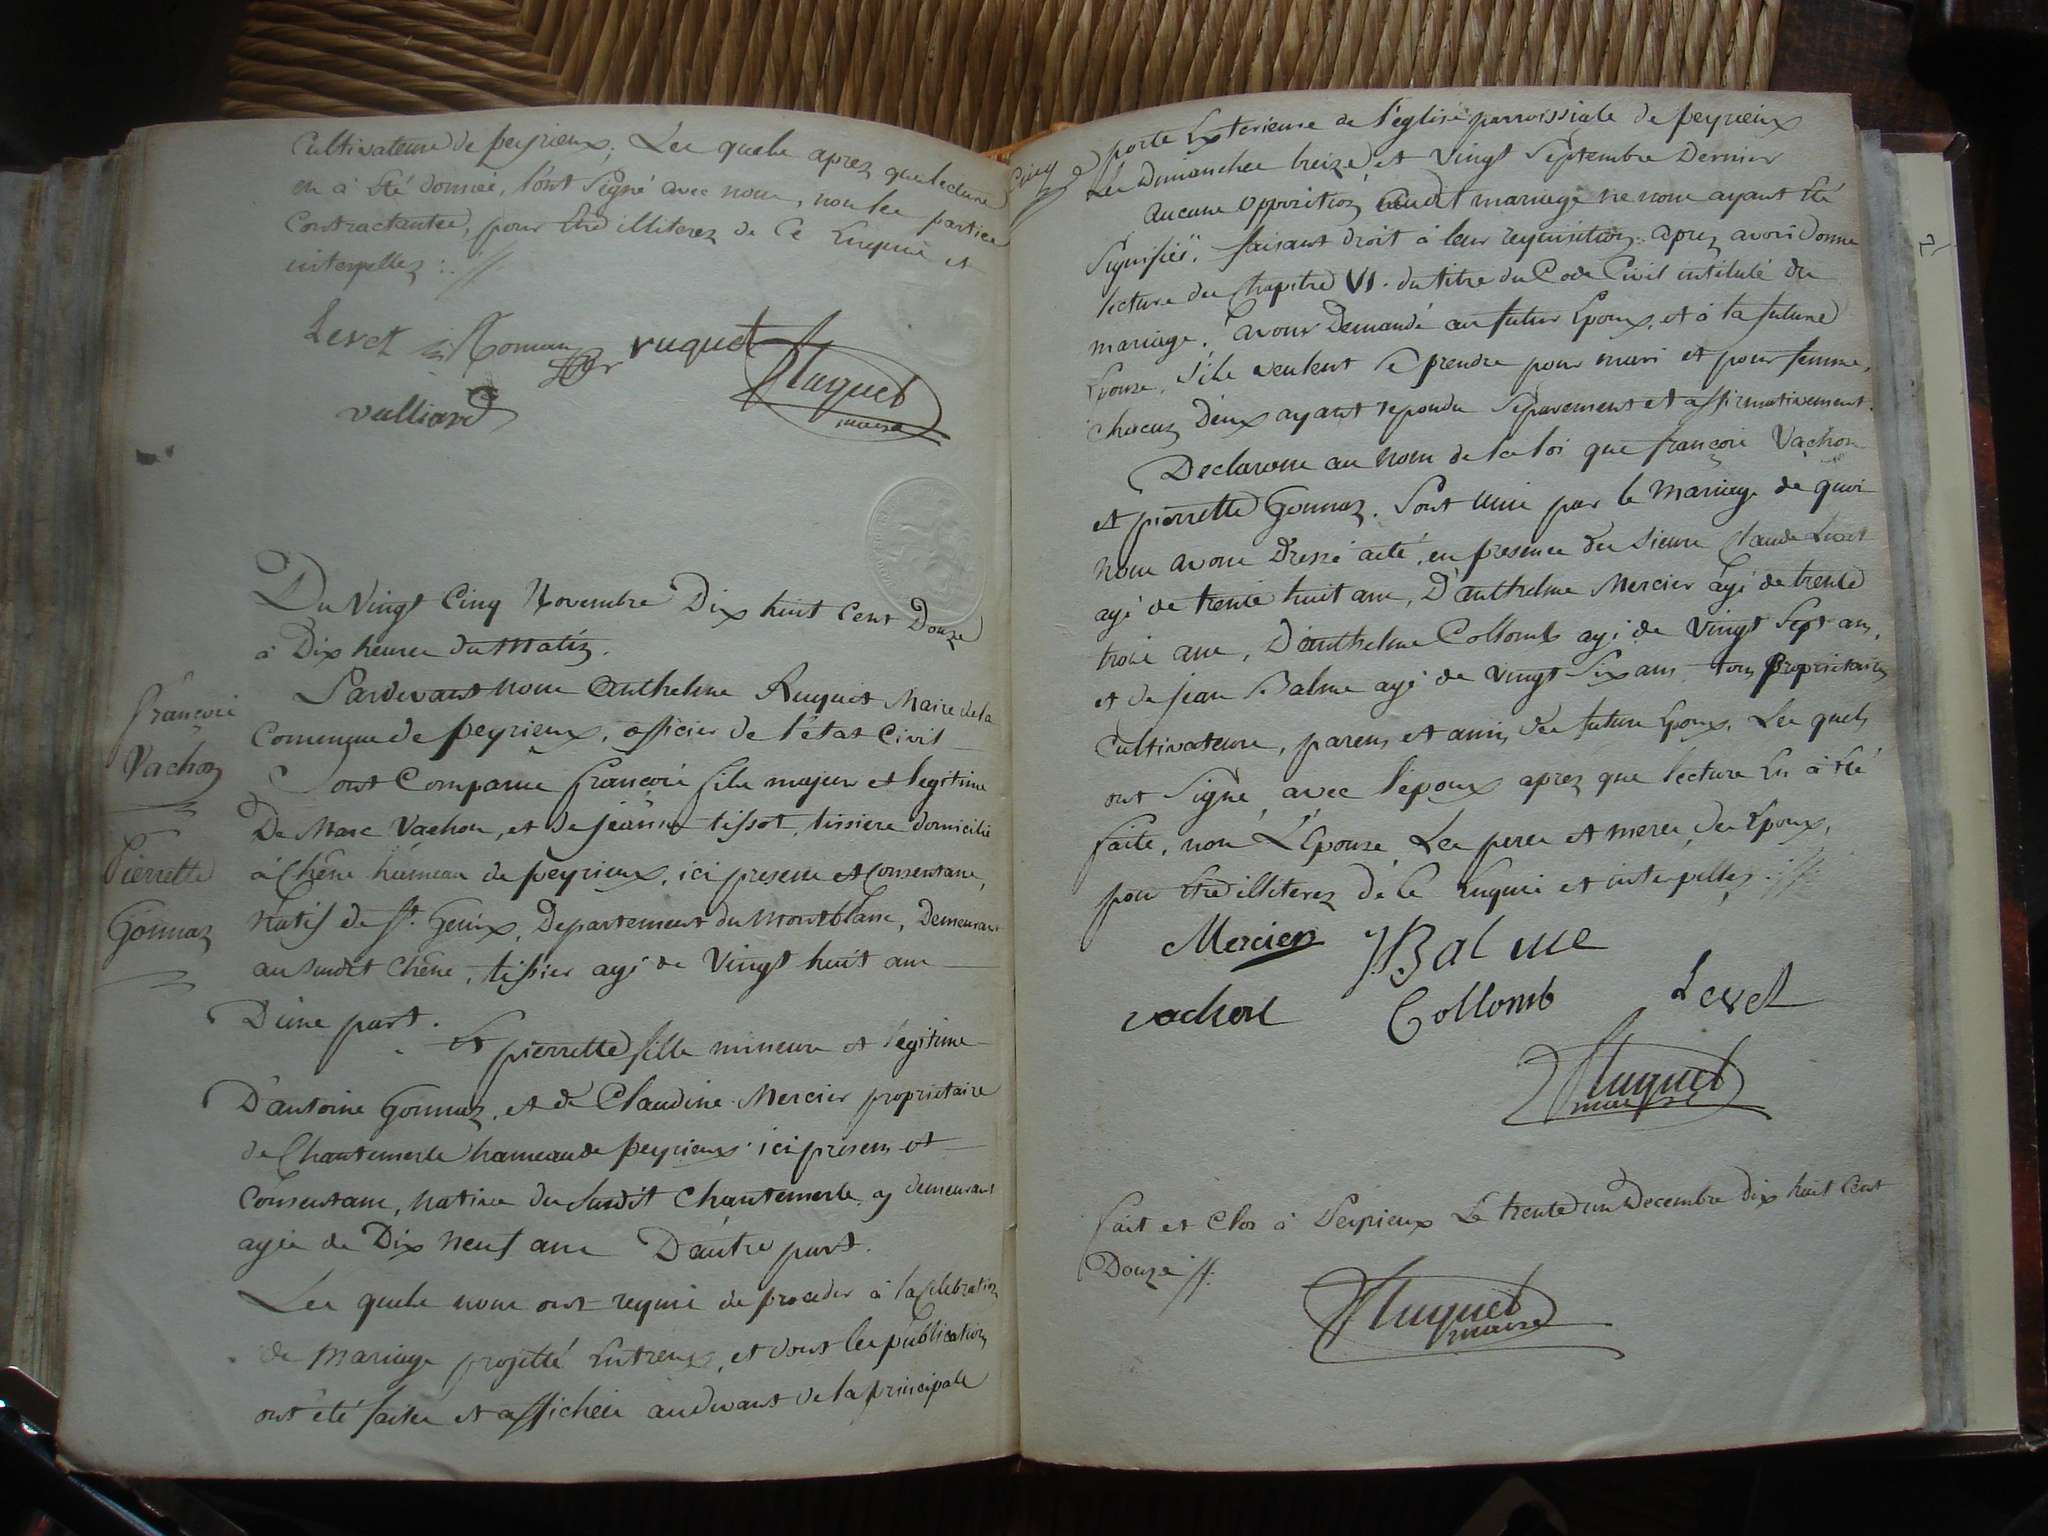 Cultivateurs de peyrieux, Les quels aprez que lecture
en à été donnée, l'ont signé avec nous, non les parties
Contractantes, pour être illiterez de ce Enquis et
interpellez ://
Levet Roman ruquet
Ruquet
maire
vulliard
Du Vingt Cinq Novembre Dix huit Cent Douze
à Dix heures du Matin.
Pardevant nous Anthelme Ruquet Maire de la
Commune de peyrieux, officier de l'état Civil
Sont Comparus françois fils majeur et legitime
De Marc Vachon, et de jeanne tissot, tissiers domiciliés
à Chêne hameau de peyrieux, ici presens et Consentans,
Natif de St. Genix, Departement du Montblanc, Demeurant
au susdit Chêne, tissier agé de Vingt huit ans
D'une part.
Et pierrette fille mineure et legitime
D'antoine Gonnaz, et de Claudine Mercier proprietaires
de Chantemerle hameau de peyrieux ici presens et
Consentans, native du susdit Chantemerle y demeurant
agée de Dix neuf ans D'autre part.
Les quels nous ont requis de proceder à la Celebration
de Mariage projetté Entreux, et dont les publications
ont été faites et affichées audevant de la principale
françois
Vachon
Pierrette
Gonnaz
porte Exterieure de l'eglise parroissiale de peyrieux
Les Dimanches treize et Vingt Septembre Dernier
Aucune Opposition audit mariage ne nous ayant Eté
Signifiée, faisant droit à leur requisition, aprez avoir donné
lecture du Chapitre VI. du titre du Code Civil intitulé du
mariage, avons Demandé au futur Epoux, et à la future
Epouse, s'ils veulent se prendre pour mari et pour femme,
Chacun D'eux ayant repondu Séparement et affirmativement.
Declarons au nom de la loi que françois Vachon
et pierrette Gonnaz. Sont Unis par le Mariage de quoi
Nous avons Dressé acte, en presence des sieurs Claude Levet
agé de trente huit ans, D'anthelme Mercier agé de trente
trois ans, D'anthelme Collomb agé de Vingt Sept ans,
et de jean Balme agé de vingt Six ans tous proprietaires
Cultivateurs, parens et amis des futurs Epoux, Les quels
ont Signé, avec l'époux aprez que lecture En à été
faite, non L'Epouse Les peres et meres des Epoux,
pour être illiterez de ce Enquis et interpellez ://
Mercier J Balme
vachon Collomb Levet
Ruquet
maire
fait et Clos à Peyrieux Le trente un Decembre dix huit Cent
Douze //.
Ruquet
maire